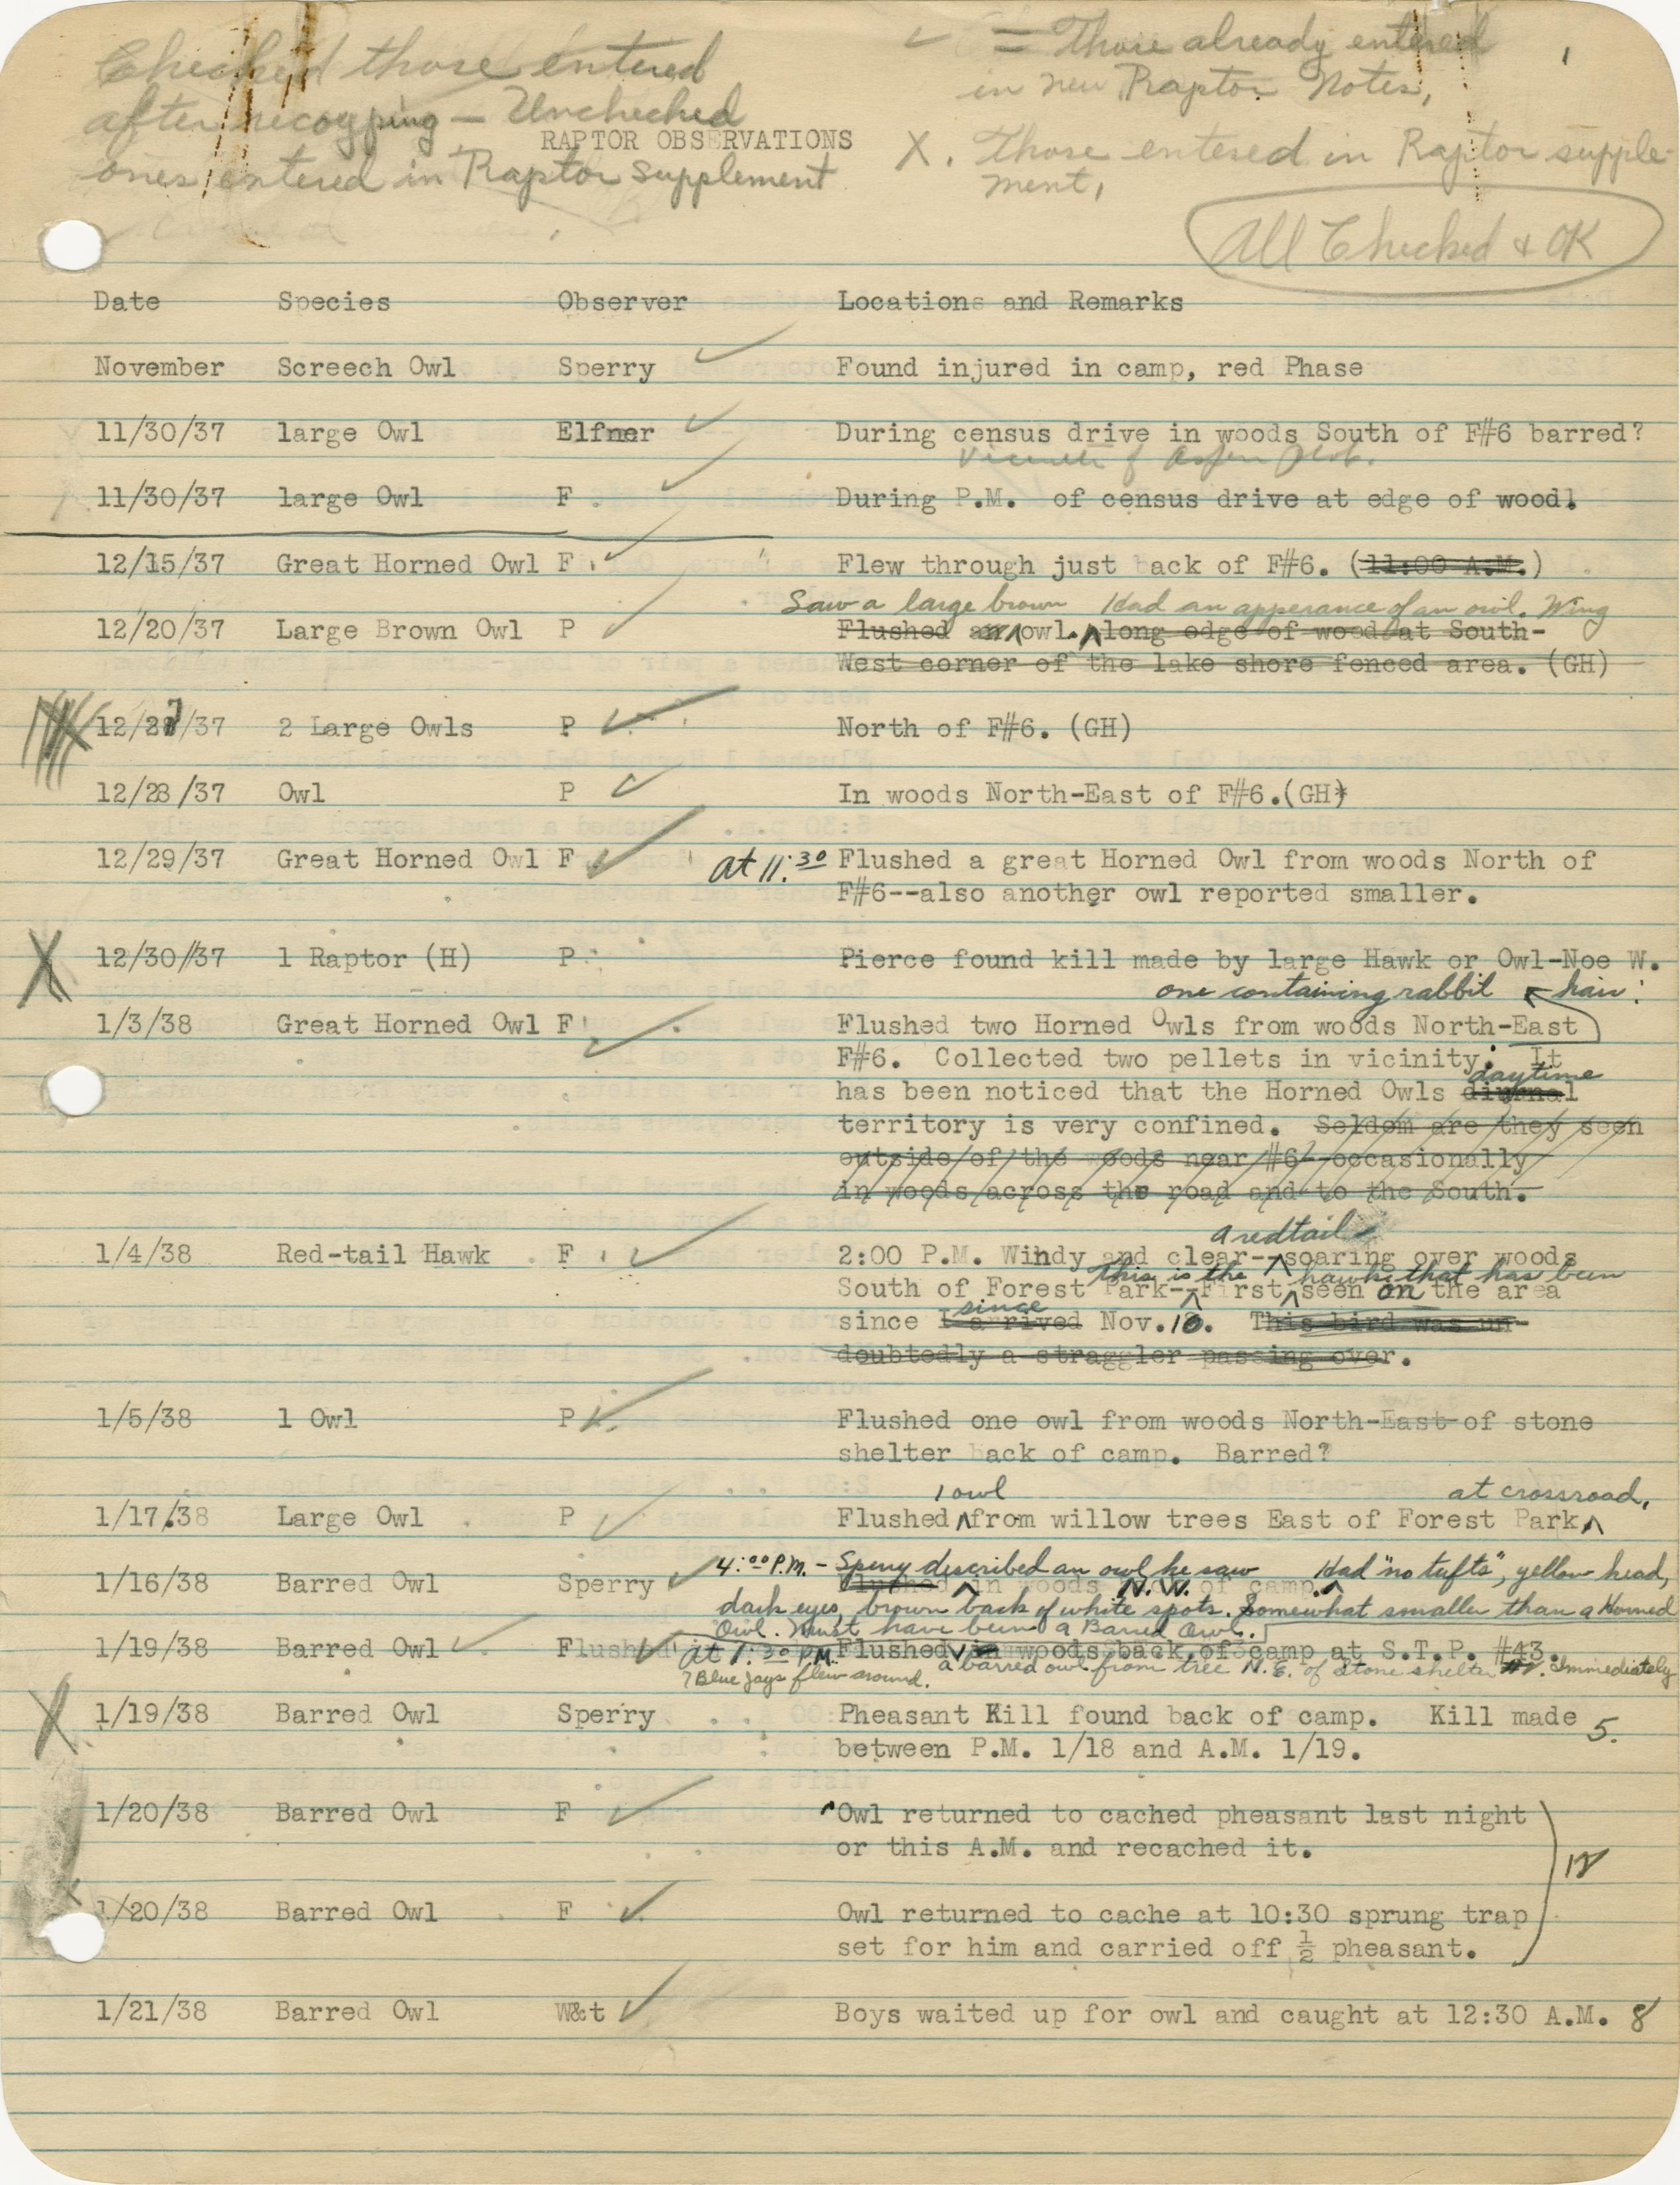 Checked those entered
after recopying — Unchecked
ones entered in Raptor Supplement
✓ = Those already entered
in new Raptor Notes,
X. Those entered in Raptor supple-
ment,
All Checked & OK
RAPTOR OBSERVATIONS
Date Species Observer Locations and Remarks
November Screech Owl Sperry ✓ Found injured in camp, red Phase
11/30/37 large Owl Elfner ✓ During census drive in woods South of F#6 barred?
of Aspen Plot.
11/30/37 large Owl F. ✓ During P.M. of census drive at edge of wood.
12/15/37 Great Horned Owl F. ✓ Flew through just back of F#6. (11:00 A.M.)
Saw a large brown Had an apperance of an owl. Wing
12/20/37 Large Brown Owl P ✓ Flushed an owl. long edge of wood at South-
West corner of the lake shore fenced area. (GH)
X 12/27/37 2 Large Owls P ✓ North of F#6. (GH)
12/28/37 Owl P ✓ In woods North-East of F#6.(GH)
12/29/37 Great Horned Owl F ✓ At 11:30 Flushed a great Horned Owl from woods North of
F#6--also another owl reported smaller.
X 12/30/37 1 Raptor (H) P Pierce found kill made by large Hawk or Owl-Noe W.
one containing rabbit hair.
1/3/38 Great Horned Owl F ✓ Flushed two Horned Owls from woods North-East
F#6. Collected two pellets in vicinity. It
daytime
has been noticed that the Horned Owls diurnal
territory is very confined. Seldom are they seen
outside of the woods near #6--occasionally
in woods across the road and to the South.
a redtail
1/4/38 Red-tail Hawk F. ✓ 2:00 P.M. Windy and clear--soaring over woods
This is the hawk that has been
South of Forest Park--First seen on the area
since
since I arrived Nov.10. This bird was un-
doubtedly a straggler passing over.
1/5/38 1 Owl P ✓ Flushed one owl from woods North-East of stone
shelter back of camp. Barred?
1 owl at crossroad,
1/17/38 Large Owl P ✓ Flushed from willow trees East of Forest Park
4:00 P.M. - Sperry described an owl he saw Had "no tufts", yellow head,
1/16/38 Barred Owl Sperry ✓ Flushed in woods N.W. of camp.
dark eyes, brown back of white spots. Somewhat smaller than a Horned
Owl. Must have been a Barred Owl.
1/19/38 Barred Owl ✓ Flushed ✓ At 1:30 P.M. Flushed in woods back of camp at S.T.P. #43.
a barred owl from tree N.E. of Stone shelter Immediately
7 Blue Jays flew around.
X 1/19/38 Barred Owl Sperry Pheasant Kill found back of camp. Kill made 5.
between P.M. 1/18 and A.M. 1/19.
1/20/38 Barred Owl F ✓ Owl returned to cached pheasant last night
or this A.M. and recached it.
1/20/38 Barred Owl F ✓ Owl returned to cache at 10:30 sprung trap
set for him and carried off ½ pheasant.
1/21/38 Barred Owl W&t ✓ Boys waited up for owl and caught at 12:30 A.M. 8